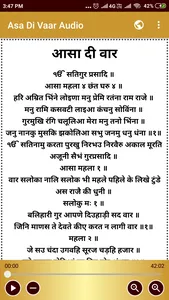 3:47 PM
4G
Asa Di Vaar Audio
आसा दी वार
ੴ सतिगुर प्रसादि ॥
आसा महला ४ छंत घरु ४ ॥
हरि अम्रित भिंने लोइणा मनु प्रेमि रतंना राम राजे ॥
मनु रामि कसवटी लाइआ कंचनु सोविंना ॥
गुरमुखि रंगि चलूलिआ मेरा मनु तनो भिंना ॥
जनु नानकु मुसकि झकोलिआ सभु जनमु धनु धंना ॥१॥
ੴ सतिनामु करता पुरखु निरभउ निरवैरु अकाल मूरति
अजूनी सैभं गुरप्रसादि ॥
आसा महला १ ॥
वार सलोका नालि सलोक भी महले पहिले के लिखे टुंडे
अस राजै की धुनी ॥
सलोकु मः १ ॥
बलिहारी गुर आपणे दिउहाड़ी सद वार ॥
जिनि माणस ते देवते कीए करत न लागी वार ॥१॥
महला २ ॥
जे सउ चंदा उगवहि सूरज चड़हि हजार ॥
00:00
42:02